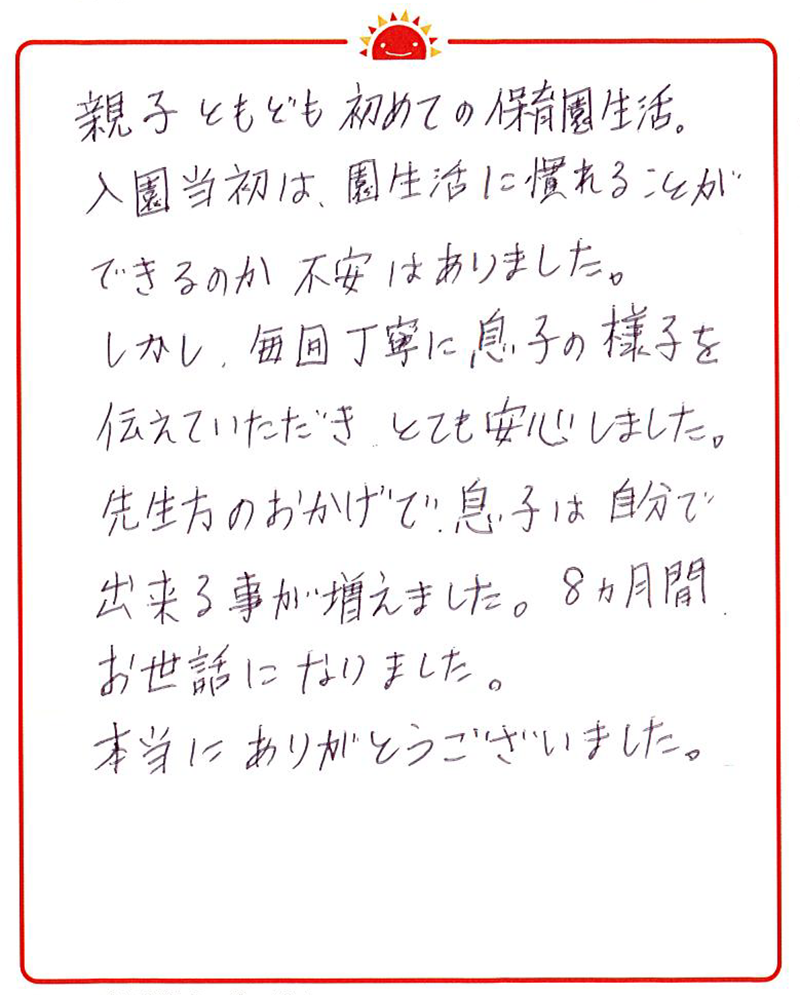 親子ともども初めての保育園生活。
入園当初は、園生活に慣れることが
できるのか不安はありました。
しかし、毎回丁寧に息子の様子を
伝えていただき、とても安心しました。
先生方のおかげで、息子は自分で
出来る事が増えました。8ヵ月間、
お世話になりました。
本当にありがとうございました。